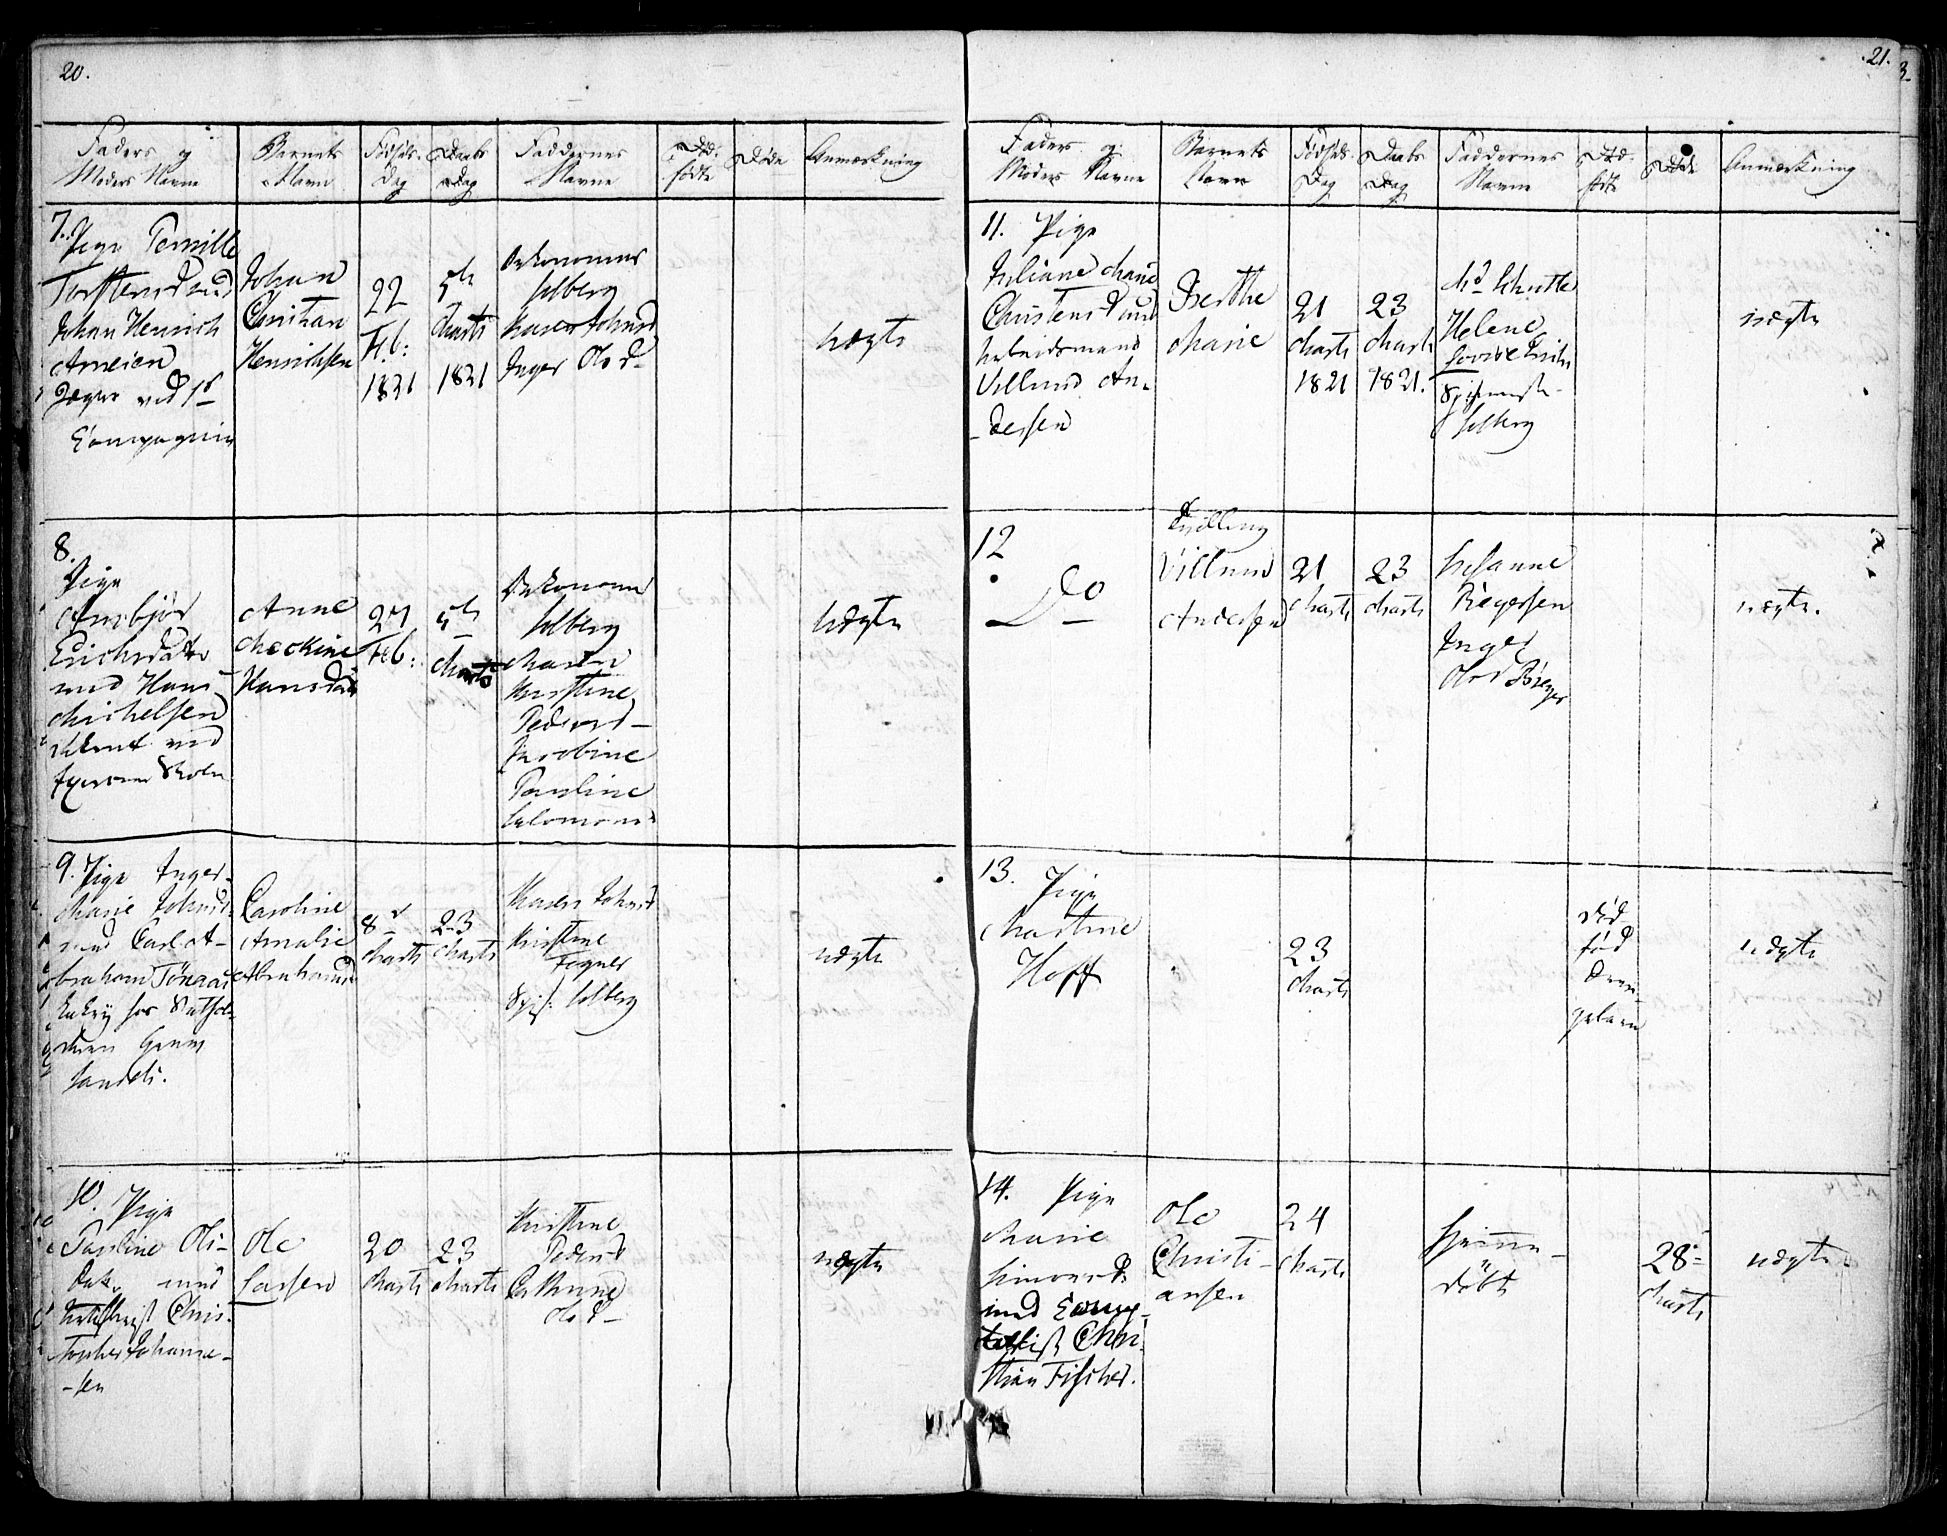 20.
Faders og
Moders Navne
Barnets
Navn
Fødsels
Dag
Daabs
Dag
Faddernes
Navne
Død-
fødte
Døde
Anmærkning
7. Pige Pernille
Torstensd med
Johan Henrich
Jæger ved 1st
Compagnie
Johan
Christian
Henrichsen
22
Feb:
1821
5te
Marts
1821
Oekonomus
Solberg
Maren Johnsd
Inger Olsd
uægte
8.
Pige
Ambjør
Erichsdatter
med Hans
Michelsen
ved
Anne
Hansdatter
27
Feb:
5te
Marts
Oekonom
Solberg
Maren
Kirstine
Pedersd
Jacobine
Pauline
Salomons
uægte
9. Pige Inger
Marie Johnsd
med Carl A-
braham
hos
Caroline
Amalie
Abrahamsd
8d
Marts
23
Marts
Maren Johnsd
Kirstine
Fegner
Spis. Solberg
uægte
10. Pige
Pauline Ols-
dat. med
Chris-
topher Johanne-
-sen
Ole
Lassen
20
Marts
23
Marts
Kirstine
Pedersd
Cathrine
Olsd
uægte
21.
3
Faders og
Moders Navne
Barnets
Navn
Fødsels
Dag
Daabs
Dag
Faddernes
Navne
Død-
fødte
Døde
Anmærkning
11. Pige
Juliane Marie
Christensd med
Arbeidsmand
Villum An-
-dersen
Berthe
Marie
21
Marts
1821
23
Marts
1821.
Md Schutte
Helene
Solberg
uægte
12
Do
Tvilling
Villum
Andersen
21
Marts
23
Marts
Susanne
Inger
uægte.
13. Pige
Martine
Hoff
23
Marts
Død
fød
Drenge-
barn
uægte
14. Pige
Marie
Simonsd.
med
Chri-
stian Fischer.
Ole
Christi-
ansen
24
Marts
hjemme-
døbt
28de
Marts
uægte